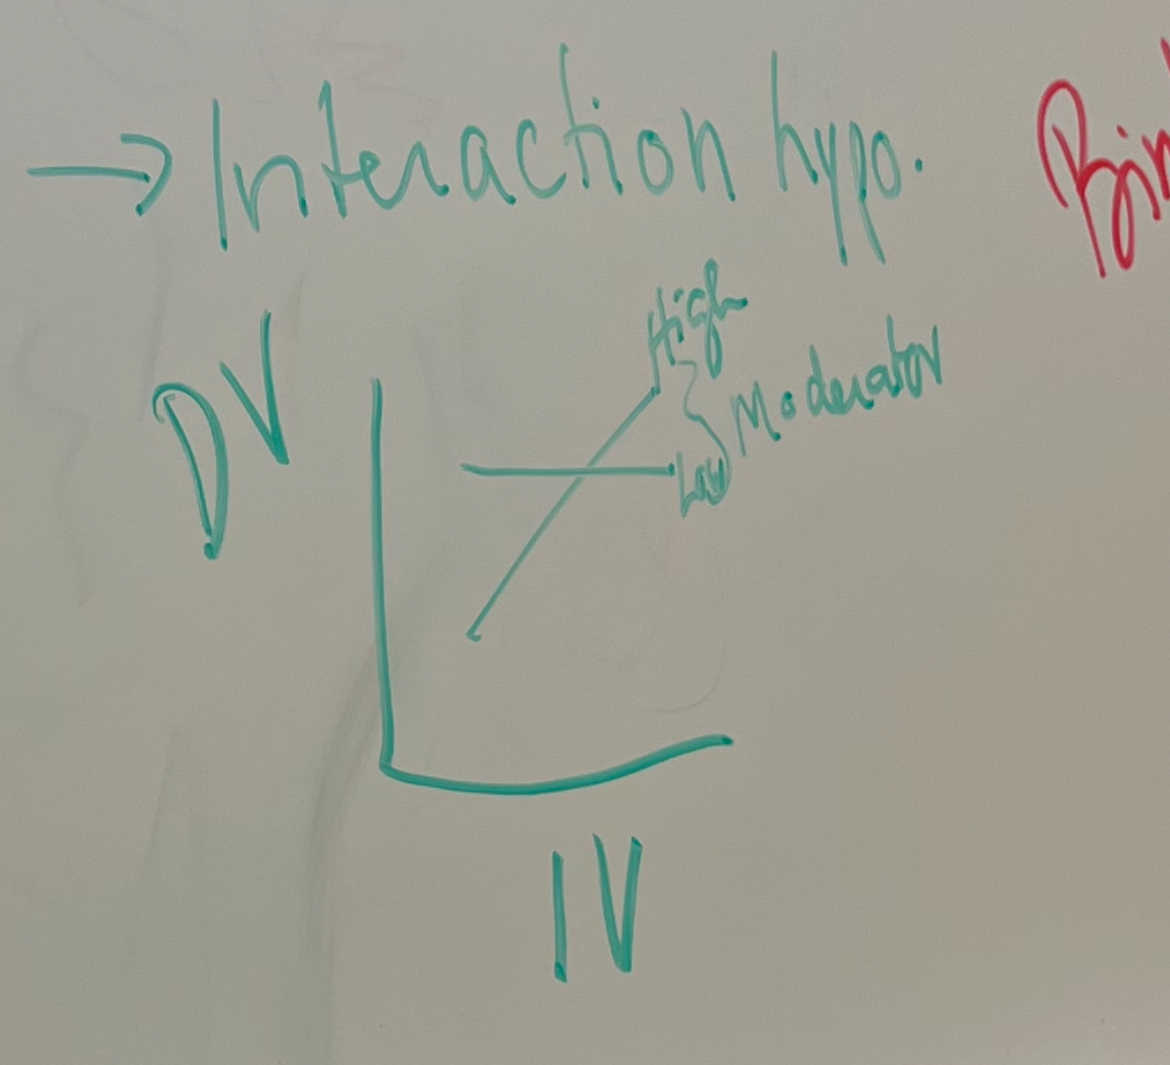 → Interaction hypo.
High
DV
Moderator
Low
IV